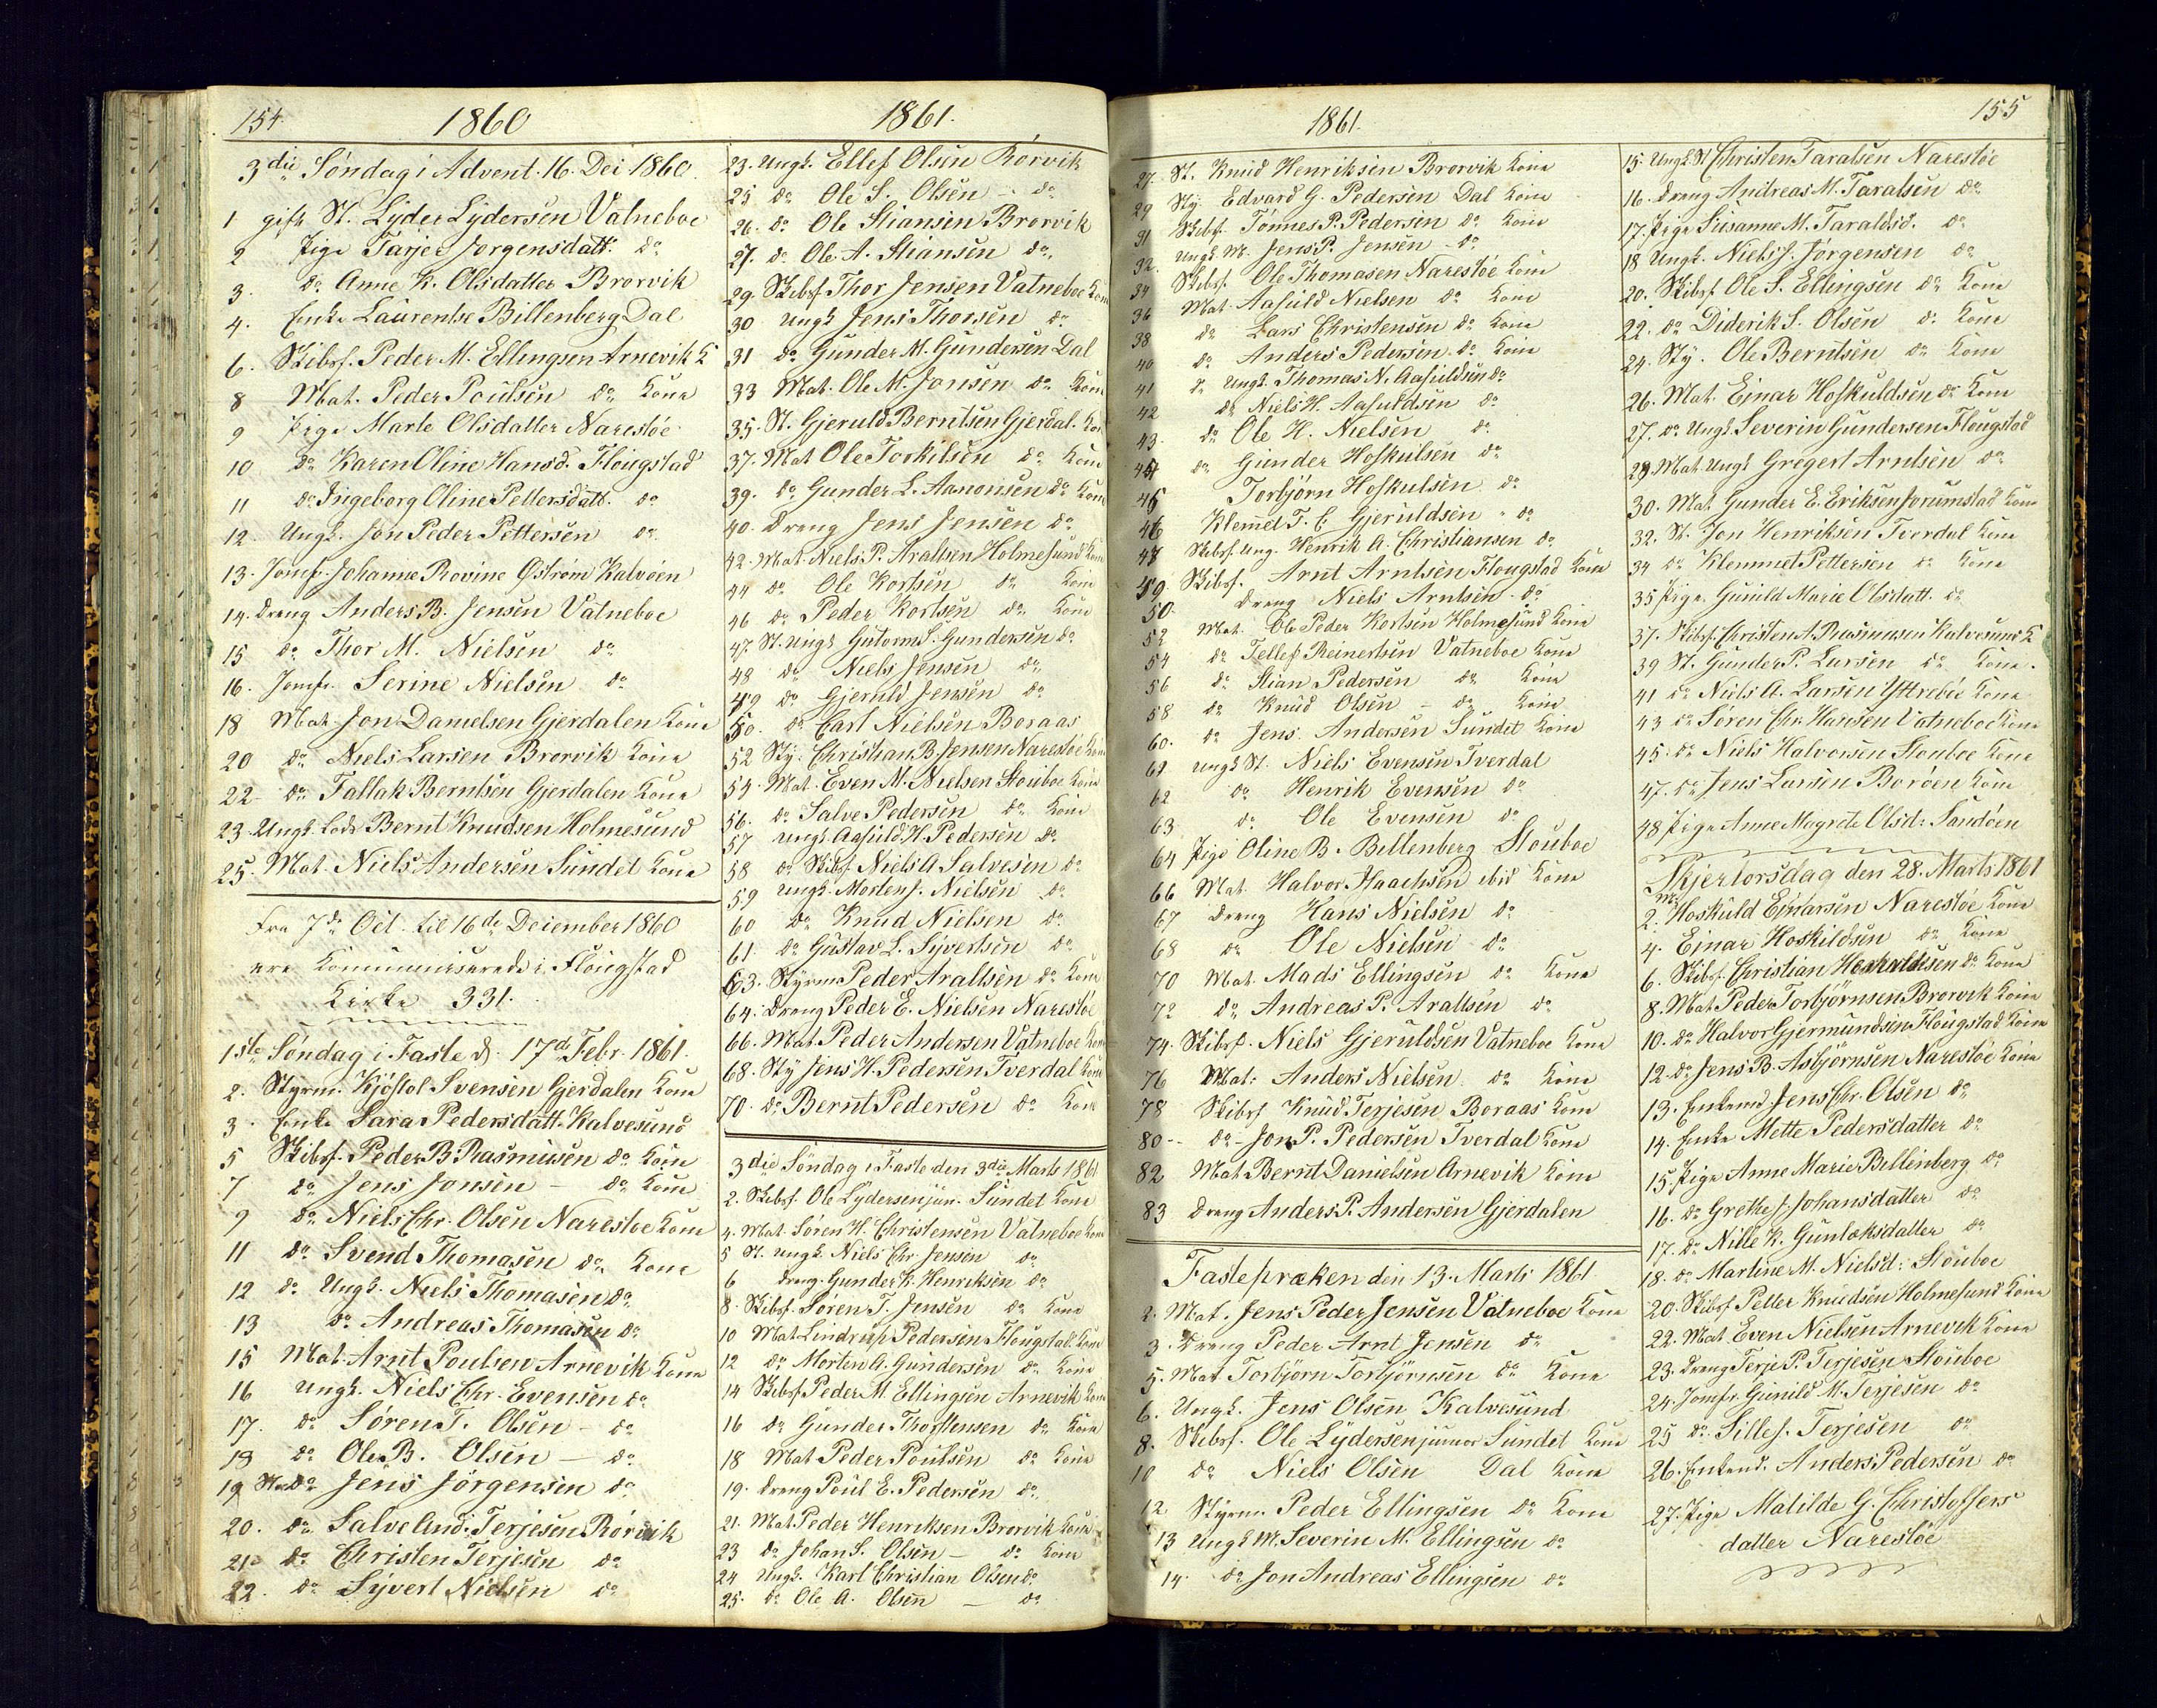 154. 1860 1861.
3die Søndag i Advent. 16. Dec 1860.
1 gift St. Lyder Lydersen Vatneboe
2 Pige Tarjer Jørgensdatt. do
3. do Anne K. Olsdatter Brorvik
4. Enke Laurentse Billenberg Dal
6. Skibsf. Peder M. Ellingsen Arnevik K
8 Mat. Peder Poulsen do Kone
9 Pige Marte Olsdatter Narestöe
10 do Karen Oline Hansd. Flougstad
11 do Ingeborg Oline Pettersdatt. do
12. Ungk. Jon Peder Pettersen do
13. Jomfr. Johanne Rovine Øström Kalvöen
14. Dreng Anders B. Jensen Vatneboe
15 do Thor M. Nielsen do
16. Jomfr. Serine Nielsen do
18 Mat. Jon Danielsen Gjerdalen Kone
20 do Niels Larsen Brorvik Kone
22 do Tallak Berntsen Gjerdalen Kone
23. Ungk. Lods Bernt Knudsen Holmesund
25. Mat. Niels Andersen Sundet Kone
Fra 7de Oct. til 16de December 1860
ere Kommunicerede i Flougstad
Kirke 331.
1ste Søndag i Faste d. 17d Febr. 1861.
2. Styrm. Kjöstol Svensen Gjerdalen Kone
3. Enke Sara Pedersdatt. Kalvesund
5 Skibsf. Peder B Rasmusen do Kone
7 do Jens Jonsen - do Kone
9 do Niels Chr. Olsen Narestoe Kone
11 do Svend Thomasen do Kone
12 do Ungk. Niels Thomasen do
13 do Andreas Thomasen do
15 Mat. Arnt Poulsen Arnevik Kone
16 Ungk. Niels Chr. Evensen do
17. do Søren T. Olsen - do
18 do Ole B. Olsen - do
19 do Jens Jörgensen do
20. do Salve And. Terjesen Rörvik
21 do Christen Terjesen do
22. do Syvert Nielsen do
23. Ungk. Ellef Olsen Rörvik
25 do Ole S. Olsen - do
26. do Ole Stiansen Brorvik
27. do Ole A. Stiansen do
29. Skibsf. Thor Jensen Vatneboe Kone
30 Ungk Jens Thorsen do
31 do Gunder M. Gundersen Dal
33 Mat. Ole M. Jonsen do Kone
35. St. Gjeruld Berntsen Gjerdal. Kone
37. Mat Ole Torkilsen do Kone
39. do Gunder L. Aanonsen do Kone
40. Dreng Jens Jensen do
42. Mat. Niels P. Araltsen Holmesund Kone
44 do Ole Kortsen do Kone
46 do Peder Kortsen do Kone
47. St. Ungk Gutorm S. Gundersen do
48 do Niels Jensen do
49 do Gjeruld Jensen do
50. do Carl Nielsen Boraas
52 Sty. Christian B. Jensen Narestöe Kone
54. Mat. Even M. Nielsen Stouboe Kone
56. do Salve Pedersen do Kone
57 Ungk. Aasuld H. Pedersen do
58 do Skibsf. Niels A Salvesen do
59 Ungk. Morten J. Nielsen do
60 do Knud Nielsen do
61. do Gustav L. Syvertsen do
63. Styrm. Peder Araltsen do Kone
64. Dreng Peder E. Nielsen Narestöe
66. Mat. Peder Andersen Vatneboe Kone
68. Sty Jens H. Pedersen Tverdal Kone
70. do Bernt Pedersen do Kone
3die Söndag i Faste den 3die Marts 1861
2. Skibsf. Ole Lydersen jun. Sundet Kone
4. Mat. Søren H. Christensen Vatneboe Kone
5 St. Ungk. Niels Chr. Jensen do
6 Dreng. Gunder K. Henriksen do
8. Skibsf. Søren T. Jensen do Kone
10 Mat. Lindrup Pedersen Flougstad. Kone
12 do Morten A. Gundersen do Kone
14 Skibsf. Peder M. Ellingsen Arnevik Kone
16 do Gunder Thorstensen do Kone
18 Mat Peder Poulsen do Kone
19. Dreng Poul E. Pedersen do
21. Mat. Peder Henriksen Brorvik Kone
23 do Johan S. Olsen - do Kone
24 Ungk. Karl Christian Olsen do
25. do Ole A. Olsen - do
1861. 155
27. St. Knud Henriksen Brorvik Kone
29 Sty. Edvard G. Pedersen Dal Kone
31 Skibsf. Tönnes P. Pedersen do Kone
32. Ungk M. Jens P. Jensen - do
34 Skibsf. Ole Thomasen Narestöe Kone
36 Mat. Aasuld Nielsen do Kone
38 do Lars Christensen do Kone
40 do Anders Pedersen do Kone
41 do Ungk. Thomas N. Aasuldsen do
42 do Niels H. Aasuldsen do
43. do Ole H. Nielsen do
44 do Gunder Hoskulsen do
45 Torbjörn Hoskulsen do
46 Klemmet T. E. Gjeruldsen do
47 Skibsf. Ung. Henrik A. Christiansen do
49 Skibsf. Arnt Arntsen Flougstad Kone
50. Dreng Niels Arntsen do
52 Mat. Ole Peder Kortsen Holmesund Kone
54 do Tellef Reinertsen Vatneboe Kone
56 do Stian Pedersen do Kone
58 do Knud Olsen - do Kone
60. do Jens Andersen Sundet Kone
61 Ungk St. Niels Evensen Tverdal
62 do Henrik Evensen do
63. do Ole Evensen do
64 Pige Oline B. Billenberg Stouboe
66 Mat. Halvor Haachsen ibid Kone
67 Dreng Hans Nielsen do
68 do Ole Nielsen do
70 Mat. Mads Ellingsen do Kone
72 do Andreas P. Araltsen do
74. Skibsf. Niels Gjeruldsen Vatneboe Kone
76 Mat: Anders Nielsen do Kone
78 Skibsf Knud Terjesen Boraas Kone
80 do Jon P. Pedersen Tverdal Kone
82 Mat Bernt Danielsen Arnevik Kone
83 Dreng Anders P. Andersen Gjerdalen
Fastepræken den 13. Marts 1861
2. Mat. Jens Peder Jensen Vatneboe Kone
3. Dreng Peder Arnt Jensen do
5. Mat Torbjörn Torbjörnsen do Kone
6. Ungk. Jens Olsen Kalvesund
8. Skibsf. Ole Lydersen junior Sundet Kone
10 do Niels Olsen Dal Kone
12 Styrm. Peder Ellingsen do Kone
13 Ungk M. Severin M. Ellingsen do
14. do Jon Andreas Ellingsen do
15. Ungk St Christen Taralsen Narestöe
16. Dreng Andreas M. Taralsen do
17. Pige Susanne M. Taraldsd. do
18 Ungk. Niels J. Jörgensen do
20. Skibsf. Ole S. Ellingsen do Kone
22. do Diderik S. Olsen do Kone
24. Sty. Ole Berntsen do Kone
26. Mat. Ejnar Hoskuldsen do Kone
27. do Ungk. Severin Gundersen Flougstad
28. Mat. Ungk Gregert Arntsen do
30. Mat Gunder E. Eriksen Jorumstad Kone
32. St. Jon Henriksen Tverdal Kone
34 do Klemmet Pettersen do Kone
35 Pige Gunild Marie Olsdatt. do
37. Skibsf. Christen A. Rasmusen Kalvesund K
39 St. Gunder P. Larsen do Kone.
41 do Niels A. Larsen Yttreböe Kone
43 do Søren Chr. Hansen Vatneboe Kone
45. do Niels Halvorsen Stouboe Kone
47. do Jens Larsen Boröen Kone
48 Pige Anne Magrete Olsd: Sandöen
Skjertorsdag den 28. Marts 1861
2. Mat Hoskuld Ejnarsen Narestöe Kone
4. Ejnar Hoskildsen do Kone
6. Skibsf. Christian Hoskuldsen do Kone
8. Mat. Peder Torbjörnsen Brorvik Kone
10. do Halvor Gjermundsen Flougstad Kone
12. do Jens B. Asbjörnsen Narestöe Kone
13. Enkemd Jens Chr. Olsen do
14. Enke Mette Pedersdatter do
15. Pige Anne Marie Billenberg do
16. do Grethe J. Johansdatter do
17. do Nille K. Gunlaksdatter do
18. do Martine M. Nielsd: Stouboe
20. Skibsf Petter Knudsen Holmesund Kone
22. Mat. Even Nielsen Arnevik Kone
23. Dreng Terje P. Terjesen Stouboe
24. Jomfr. Gunild M. Terjesen do
25 do Sille J. Terjesen do
26. Enkemd. Anders Pedersen do
27. Pige Matilde G. Christoffers
datter Narestöe